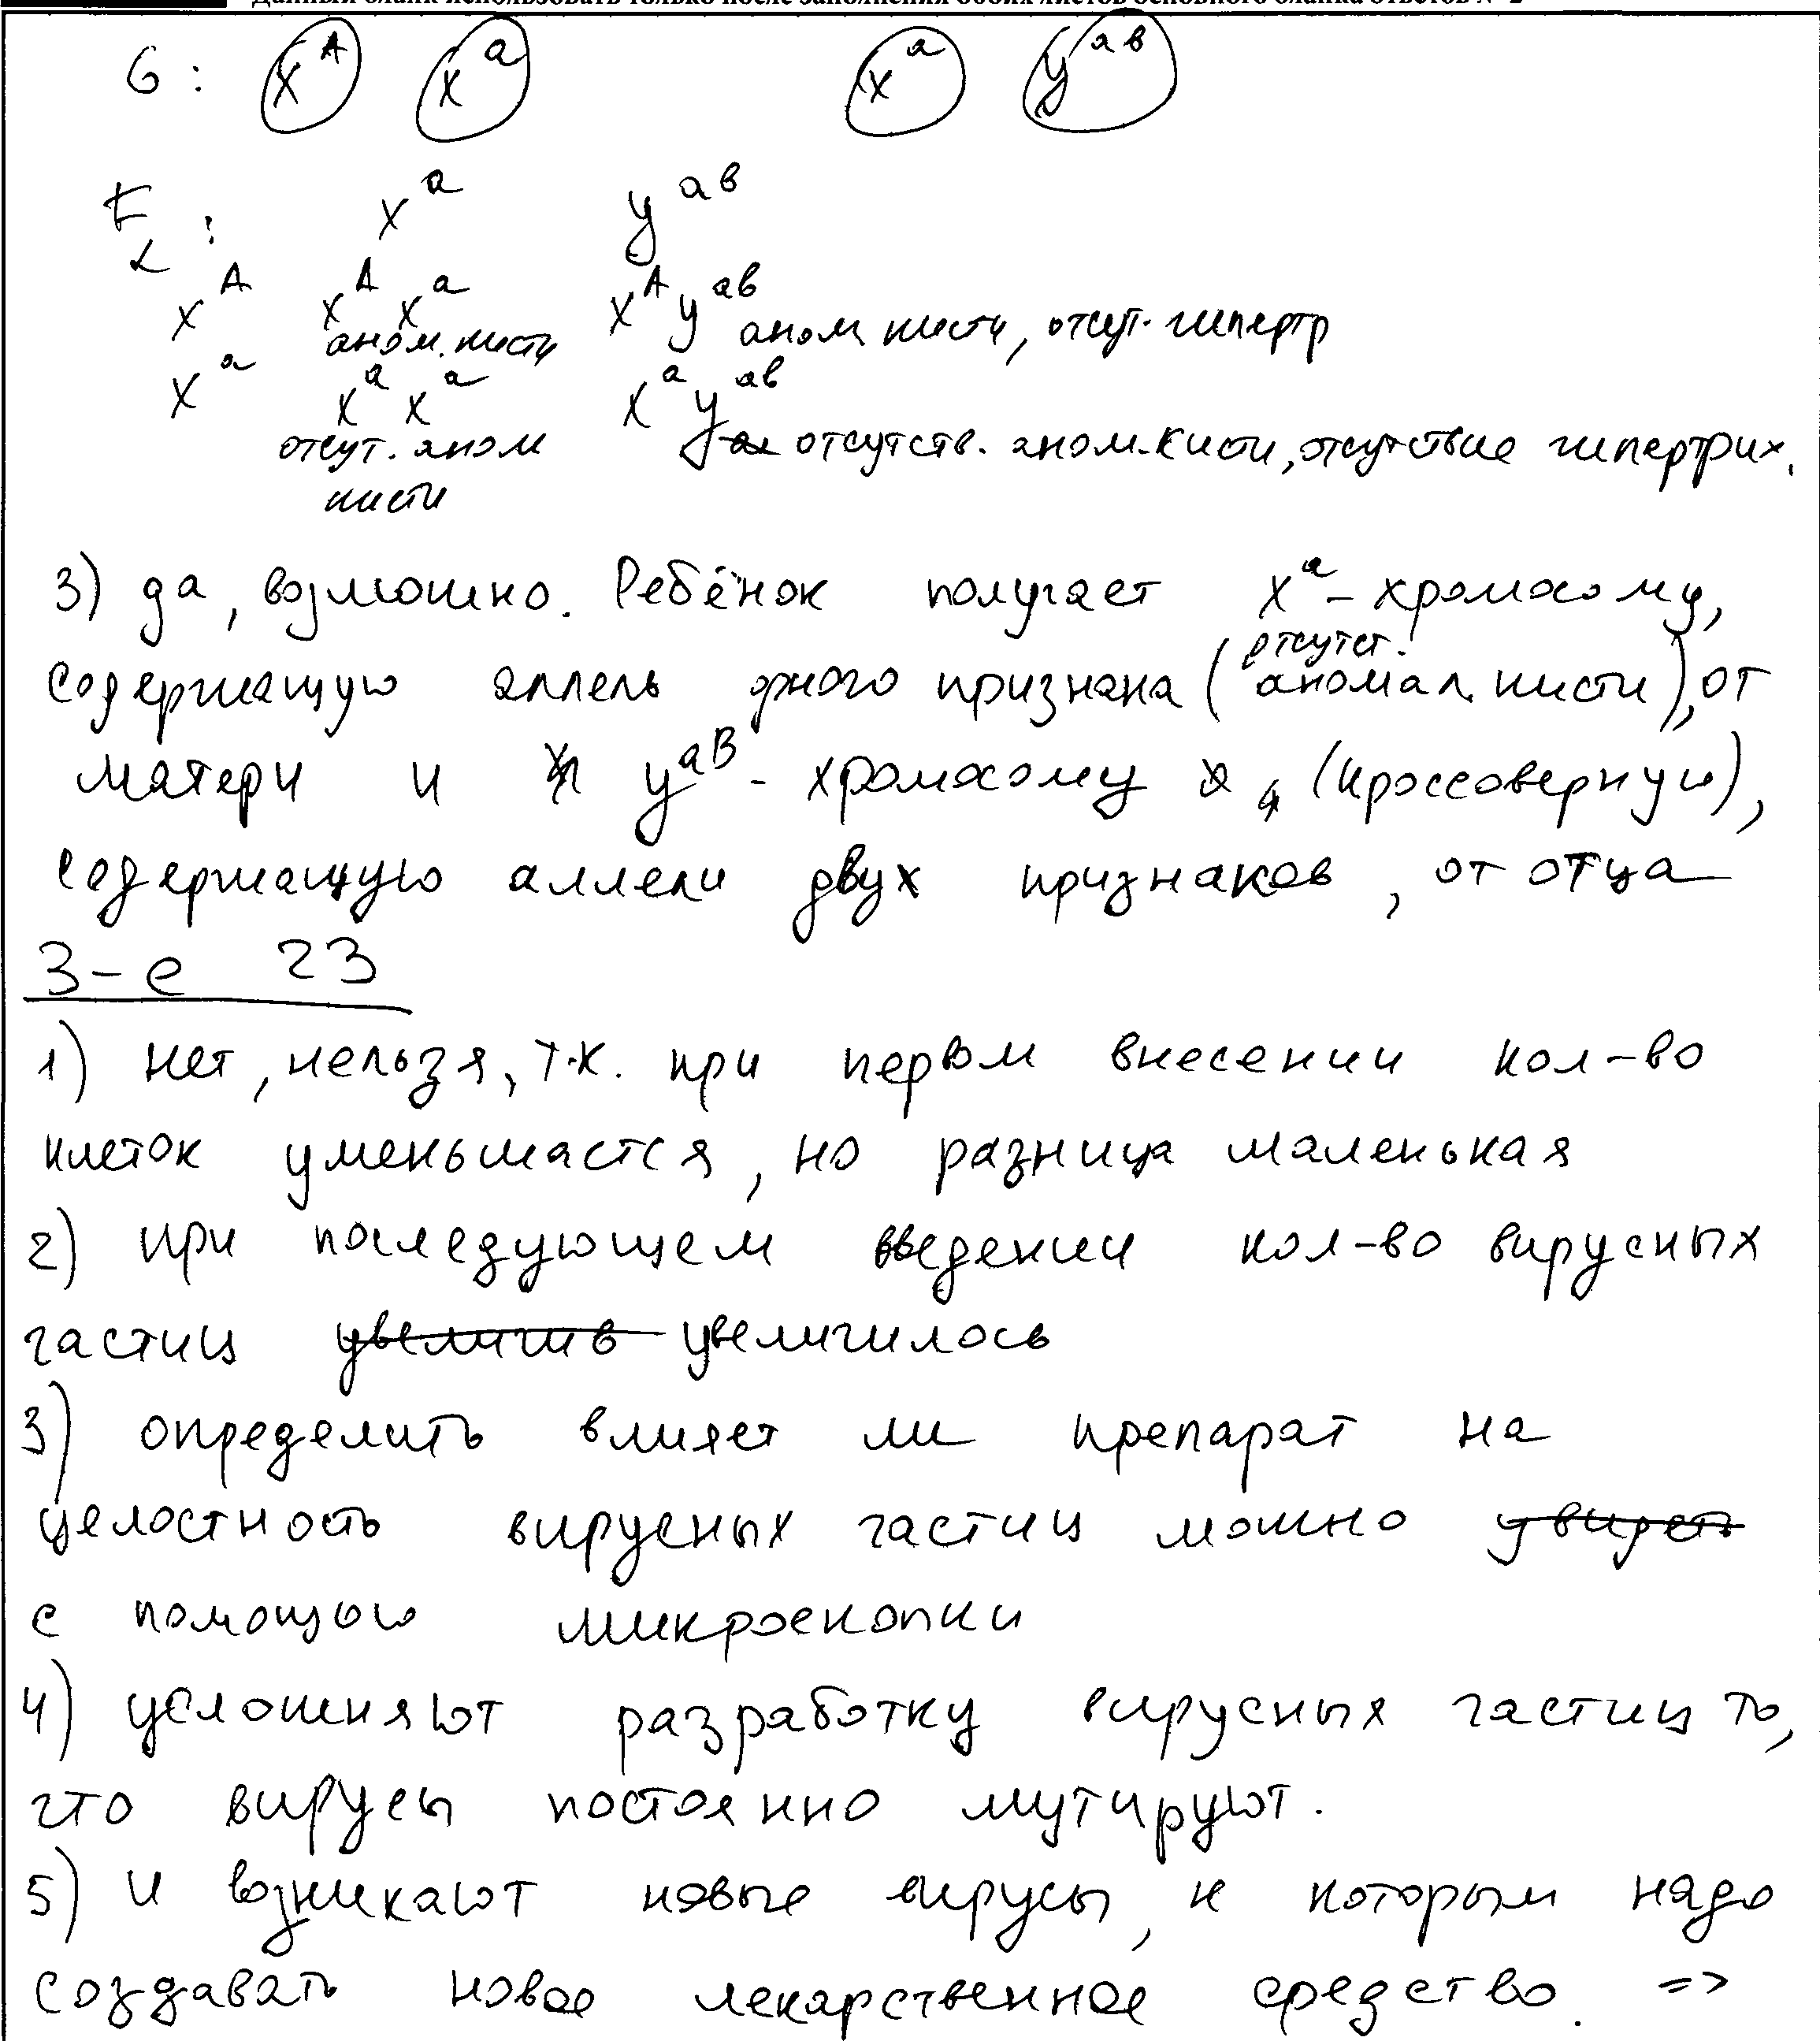 Данный бланк использовать только после заполнения обоих листов основного бланка ответов № 2
G : X^A X^a X^a y^ав
F2 : X^a y^ав
X^A X^A X^a аном. кисти X^A y^ав аном. кисти, отсут. гипертр
X^a X^a X^a отсут. аном кисти X^a y^ав отсутств. аном. кисти, отсутствие гипертрих.
3) да, возможно. Ребёнок получает X^a - хромосому,
содержащую аллель одного признака (отсутст. аномал. кисти), от
матери и y^аВ - хромосому (кроссоверную),
содержащую аллели двух признаков, от отца
З-е 23
1) нет, нельзя, т.к. при первом внесении кол-во
клеток уменьшается, но разница маленькая
2) при последующем введении кол-во вирусных
частиц увеличив увеличилось
3) определить влияет ли препарат на
целостность вирусных частиц можно увидеть
с помощью микроскопии
4) усложняют разработку вирусных частиц то,
что вирусы постоянно мутируют.
5) и возникают новые вирусы, к которым надо
создавать новое лекарственное средство. =>